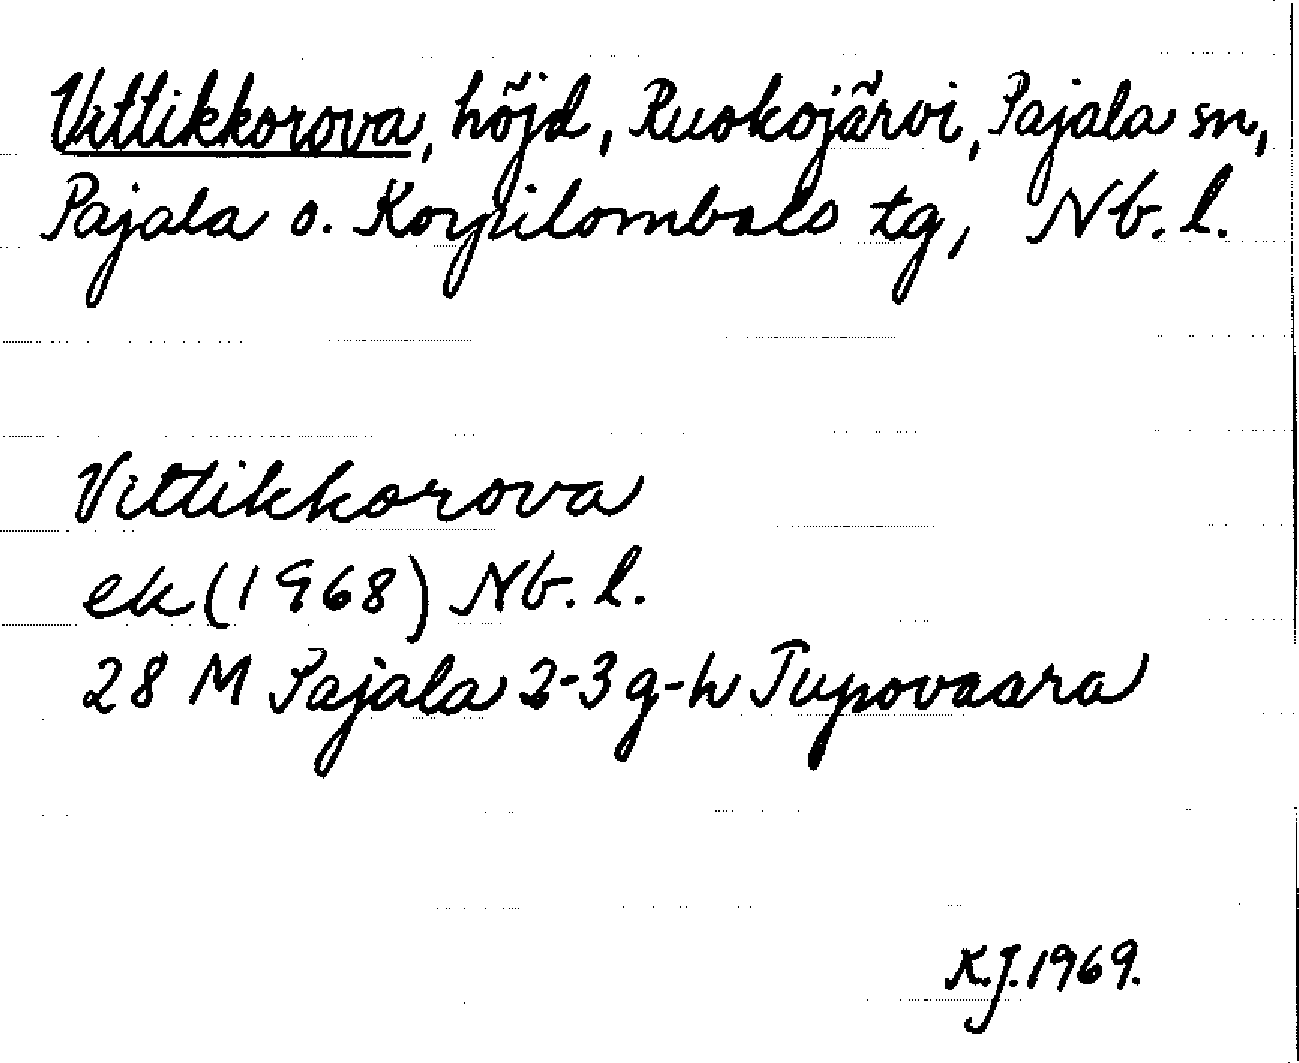 Vittikkorova, höjd, Ruokojärvi, Pajala sn,
Pajala o. Korpilombolo tg, Nb. l.
Vittikkorova
ek (1968) Nb. l.
28 M Pajala 2-3 g-h Tupovaara
K.J. 1969.